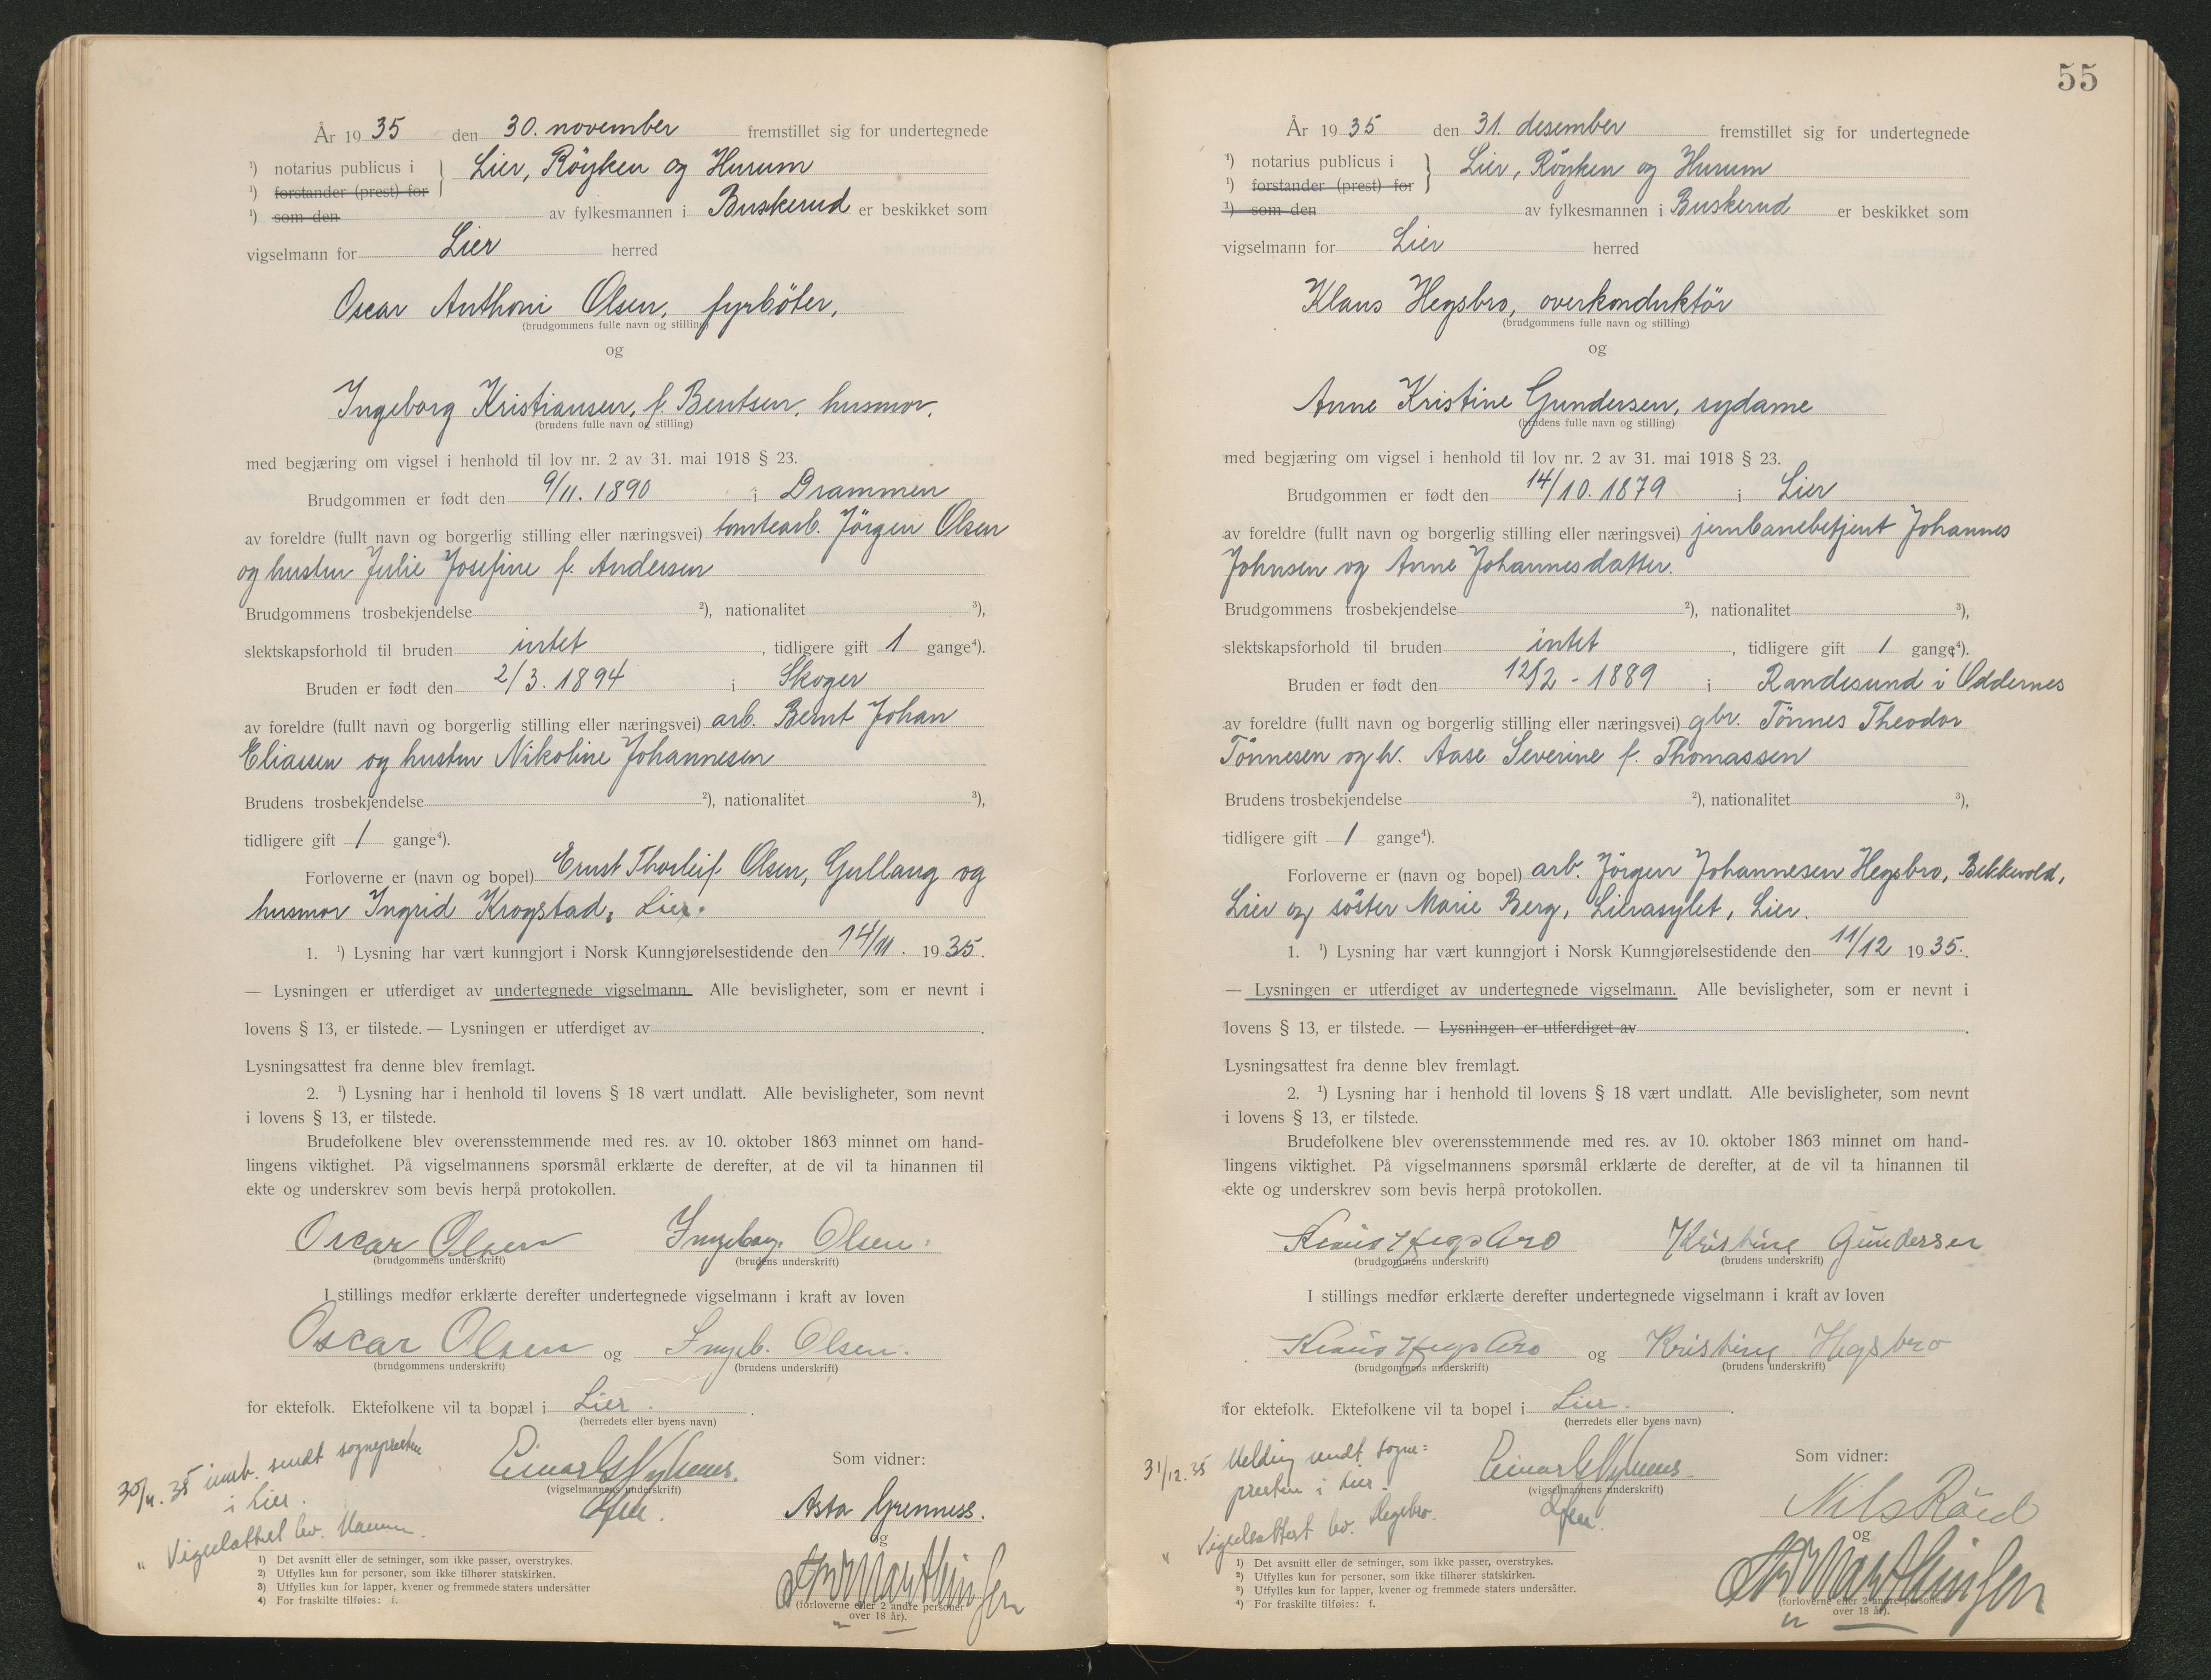 År 1935 den 30. november fremstillet sig for undertegnede
¹) notarius publicus i } Lier, Röyken og Hurum
¹) forstander (prest) for
¹) som den av fylkesmannen i Buskerud er beskikket som
vigselmann for Lier herred
Oscar Anthoni Olsen, fyrböter,
(brudgommens fulle navn og stilling)
og
Ingeborg Kristiansen, f. Bentsen, husmor.
(brudens fulle navn og stilling)
med begjæring om vigsel i henhold til lov nr. 2 av 31. mai 1918 § 23.
Brudgommen er født den 9/11. 1890 i Drammen
av foreldre (fullt navn og borgerlig stilling eller næringsvei) tomtearb. Jörgen Olsen
og hustru Julie Josefine f. Andersen
Brudgommens trosbekjendelse ²), nationalitet ³),
slektskapsforhold til bruden intet, tidligere gift 1 gange⁴).
Bruden er født den 2/3. 1894 i Skoger
av foreldre (fullt navn og borgerlig stilling eller næringsvei) arb. Bernt Johan
Eliassen og hustru Nikoline Johannesen
Brudens trosbekjendelse ²), nationalitet ³),
tidligere gift 1 gange⁴).
Forloverne er (navn og bopel) Ernst Thorleif Olsen, Gullaug og
husmor Ingrid Krogstad, Lier.
1. ¹) Lysning har vært kunngjort i Norsk Kunngjørelsestidende den 14/11. 1935.
— Lysningen er utferdiget av undertegnede vigselmann. Alle bevisligheter, som er nevnt i
lovens § 13, er tilstede. — Lysningen er utferdiget av
Lysningsattest fra denne blev fremlagt.
2. ¹) Lysning har i henhold til lovens § 18 vært undlatt. Alle bevisligheter, som nevnt
i lovens § 13, er tilstede.
Brudefolkene blev overensstemmende med res. av 10. oktober 1863 minnet om hand-
lingens viktighet. På vigselmannens spørsmål erklærte de derefter, at de vil ta hinannen til
ekte og underskrev som bevis herpå protokollen.
Oscar Olsen Ingeborg Olsen.
(brudgommens underskrift) (brudens underskrift)
I stillings medfør erklærte derefter undertegnede vigselmann i kraft av loven
Oscar Olsen og Ingeb. Olsen.
(brudgommens underskrift) (brudens underskrift)
for ektefolk. Ektefolkene vil ta bopæl i Lier.
(herredets eller byens navn)
30/11. 35 innb. sendt sognepresten
i Lier.
" Vigselattest lev.
(vigselmannens underskrift)
Som vidner:
Asta Grenness.
og
(forloverne eller 2 andre personer
over 18 år).
1) Det avsnitt eller de setninger, som ikke passer, overstrykes.
2) Utfylles kun for personer, som ikke tilhører statskirken.
3) Utfylles kun for lapper, kvener og fremmede staters undersåtter
4) For fraskilte tilføies: f.
55
År 1935 den 31. desember fremstillet sig for undertegnede
¹) notarius publicus i } Lier, Röyken og Hurum
¹) forstander (prest) for
¹) som den av fylkesmannen i Buskerud er beskikket som
vigselmann for Lier herred
Klaus Hegsbro, overkonduktör
(brudgommens fulle navn og stilling)
og
Anne Kristine Gundersen, sydame
(brudens fulle navn og stilling)
med begjæring om vigsel i henhold til lov nr. 2 av 31. mai 1918 § 23.
Brudgommen er født den 14/10. 1879 i Lier
av foreldre (fullt navn og borgerlig stilling eller næringsvei) jernbanebetjent Johannes
Johnsen og Anne Johannesdatter.
Brudgommens trosbekjendelse ²), nationalitet ³),
slektskapsforhold til bruden intet, tidligere gift 1 gange⁴).
Bruden er født den 12/2 - 1889 i Randesund i Oddernes
av foreldre (fullt navn og borgerlig stilling eller næringsvei) gbr. Tönnes Theodor
Tönnesen og h. Aase Severine f. Thomassen
Brudens trosbekjendelse ²), nationalitet ³),
tidligere gift 1 gange⁴).
Forloverne er (navn og bopel) arb. Jörgen Johannesen Hegsbro, Bekkevold,
Lier og söster Marie Berg, Lierasylet, Lier.
1. ¹) Lysning har vært kunngjort i Norsk Kunngjørelsestidende den 11/12 1935.
— Lysningen er utferdiget av undertegnede vigselmann. Alle bevisligheter, som er nevnt i
lovens § 13, er tilstede. — Lysningen er utferdiget av
Lysningsattest fra denne blev fremlagt.
2. ¹) Lysning har i henhold til lovens § 18 vært undlatt. Alle bevisligheter, som nevnt
i lovens § 13, er tilstede.
Brudefolkene blev overensstemmende med res. av 10. oktober 1863 minnet om hand-
lingens viktighet. På vigselmannens spørsmål erklærte de derefter, at de vil ta hinannen til
ekte og underskrev som bevis herpå protokollen.
Klaus Hegsbro Kristine Gundersen
(brudgommens underskrift) (brudens underskrift)
I stillings medfør erklærte derefter undertegnede vigselmann i kraft av loven
Klaus Hegsbro og Kristine Hegsbro
(brudgommens underskrift) (brudens underskrift)
for ektefolk. Ektefolkene vil ta bopel i Lier.
(herredets eller byens navn)
31/12. 35 Melding sendt sogne=
presten i Lier.
" Vigselsattest lev. Hegsbro.
(vigselmannens underskrift)
Som vidner:
Nils Röed
og
(forloverne eller 2 andre personer
over 18 år).
1) Det avsnitt eller de setninger, som ikke passer, overstrykes.
2) Utfylles kun for personer, som ikke tilhører statskirken.
3) Utfylles kun for lapper, kvener og fremmede staters undersåtter.
4) For fraskilte tilføies: f.